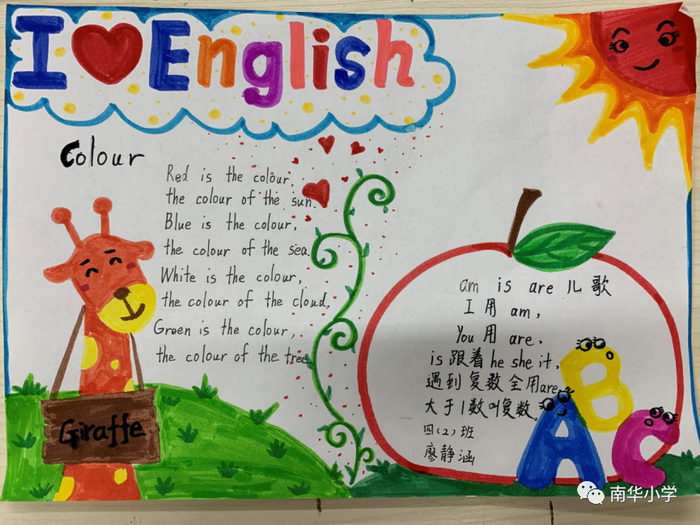 I English
Colour
Red is the colour,
the colour of the sun.
Blue is the colour,
the colour of the sea.
White is the colour,
the colour of the cloud,
Green is the colour,
the colour of the tree
Giraffe
am is are 儿歌
I 用 am,
You 用 are,
is 跟着 he she it,
遇到复数全用are
大于1数叫复数
四(2)班
廖静涵
A B C
南华小学